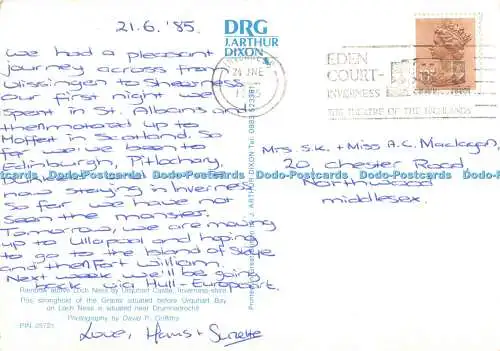 21.6.'85.
We had a pleasant
journey across from
Vlissingen to Sheerness
Our first night we
spent in St. Albans and
then motored up to
Moffat in Scotland. So
far we've been to
Edinburgh, Pitlochry,
now staying in Inverness
So far we have not
seen the monster.
Tomorrow, we are moving
up to Ullapool and hoping
to go to the Island of Skye
and then Fort William.
Next week we'll be going
back via Hull-Europoort.
Love, Hans + Suzette
DRG
J.ARTHUR
DIXON
24 JNE
EDEN
COURT-
INVERNESS
THE THEATRE OF THE HIGHLANDS
Mrs. S.K. + Miss A.C. Maclagan,
20 Chester Road
Northwood
Middlesex.
Dodo-Postcards Dodo-Postcards Dodo-Postcards Dodo-Postcards
above Loch Ness by Urquhart Castle, Inverness-shire
This stronghold of the Grants situated before Urquhart Bay
on Loch Ness is situated near Drumnadrochit
Photography by David P. Griffiths
J. ARTHUR DIXON Tel. 0983 523381